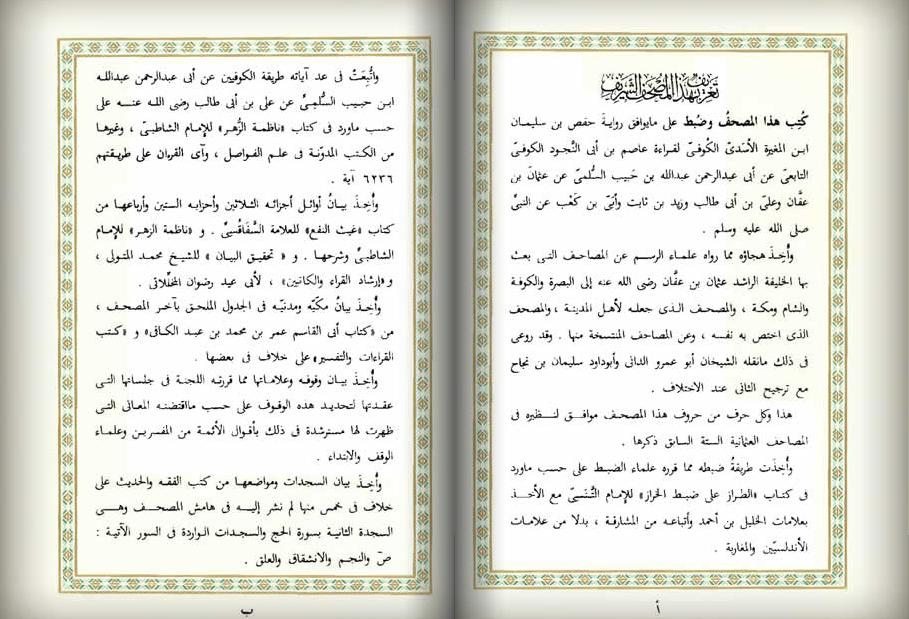 تعريف بهذا المصحف الشريف
كُتِب هذا المصحفُ وضُبط على مايوافق روايةَ حفص بن سليمان
ابن المغيرة الأسَدىّ الكُوفىّ لقراءة عاصم بن أبى النَّجود الكوفىّ
التابعىّ عن أبى عبدالرحمن عبدالله بن حَبيب السُّلَمىّ عن عثمانَ بن
عفَّان وعلىّ بن أبى طالب وزيد بن ثابت وأُبَىّ بن كَعْب عن النبىّ
صلى الله عليه وسلم .
وأُخِذَ هجاؤه مما رواه علماء الرسم عن المصاحف التى بعث
بها الخليفة الراشد عثمان بن عفَّان رضى الله عنه إلى البصرة والكوفة
والشام ومكة ، والمصحف الذى جعله لأهل المدينة ، والمصحف
الذى اختص به نفسه ، وعن المصاحف المنتسخة منها . وقد روعى
فى ذلك مانقله الشيخان أبو عمرو الدانى وأبوداود سليمان بن نجاح
مع ترجيح الثانى عند الاختلاف .
هذا وكل حرف من حروف هذا المصحف موافق لنظيره فى
المصاحف العثمانية الستة السابق ذكرها .
وأُخِذَت طريقةُ ضبطه مما قرره علماء الضبط على حسب ماورد
فى كتاب «الطراز على ضبط الخراز» للإمام التَّنَسىّ مع الأخذ
بعلامات الخليل بن أحمد وأتباعه من المشارقة ، بدلا من علامات
الأندلسيّين والمغاربة .
أ
واتُّبِعَتْ فى عد آياته طريقة الكوفيين عن أبى عبدالرحمن عبدالله
ابن حبيب السُّلَمِىّ عن على بن أبى طالب رضى الله عنه على
حسب ماورد فى كتاب «ناظمة الزُّهر» للإمام الشاطبىّ ، وغيرها
من الكتب المدوّنة فى علم الفواصل ، وآى القرءان على طريقتهم
٦٢٣٦ آية .
وأُخِذَ بيانُ أوائل أجزائه الثلاثين وأحزابه الستين وأرباعها من
كتاب «غيث النفع» للعلامة السَّفَاقُسِىّ . و «ناظمة الزهر» للإمام
الشاطبىّ وشرحها . و « تحقيق البيان » للشيخ محمد المتولى ،
و«إرشاد القراء والكاتبين» ، لأبى عيد رضوان المخلّلاتى .
وأُخِذَ بيانُ مكّيّه ومدنيّه فى الجدول الملحق بآخر المصحف ،
من «كتاب أبى القاسم عمر بن محمد بن عبد الكافى» و «كتب
القراءات والتفسير» على خلاف فى بعضها .
وأُخِذَ بيان وقوفه وعلاماتها مما قررته اللجنة فى جلساتها التى
عقدتها لتحديد هذه الوقوف على حسب مااقتضته المعانى التى
ظهرت لها مسترشدة فى ذلك بأقوال الأئمة من المفسرين وعلماء
الوقف والابتداء .
وأُخِذَ بيان السجدات ومواضعها من كتب الفقه والحديث على
خلاف فى خمس منها لم نشر إليه فى هامش المصحف وهى
السجدة الثانية بسورة الحج والسجدات الواردة فى السور الآتية :
صٓ والنجم والانشقاق والعلق .
ب